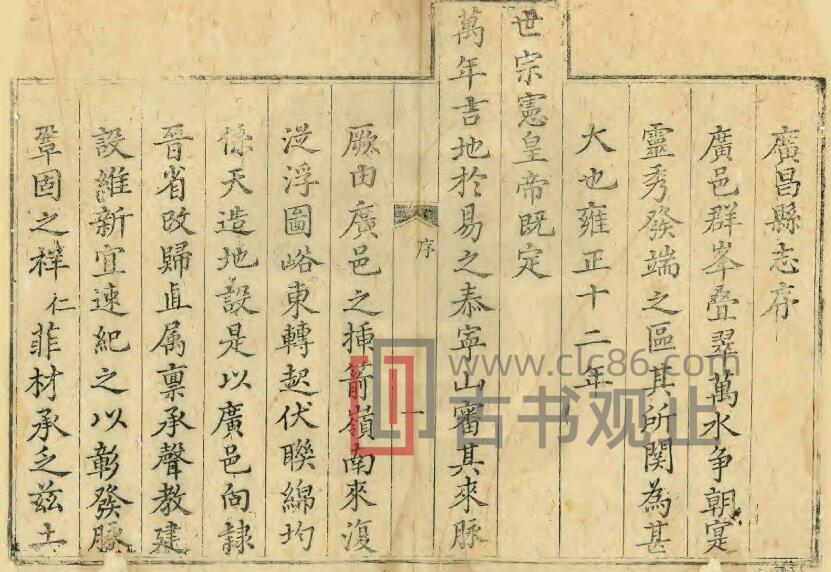 廣昌縣志序
廣邑群峯疊翠萬水争朝寔
靈秀發端之區其所関為甚
大也雍正十二年
世宗憲皇帝既定
萬年吉地於易之泰寧山審其來脉
序
一
厥由廣邑之揷箭嶺南來復
從浮圖峪東轉起伏聯綿均
係天造地設是以廣邑向隷
晉省改歸直属禀承聲教建
設維新宜速紀之以彰發脉
鞏固之祥仁菲材承乏兹土
www.clc86.com
古书观止